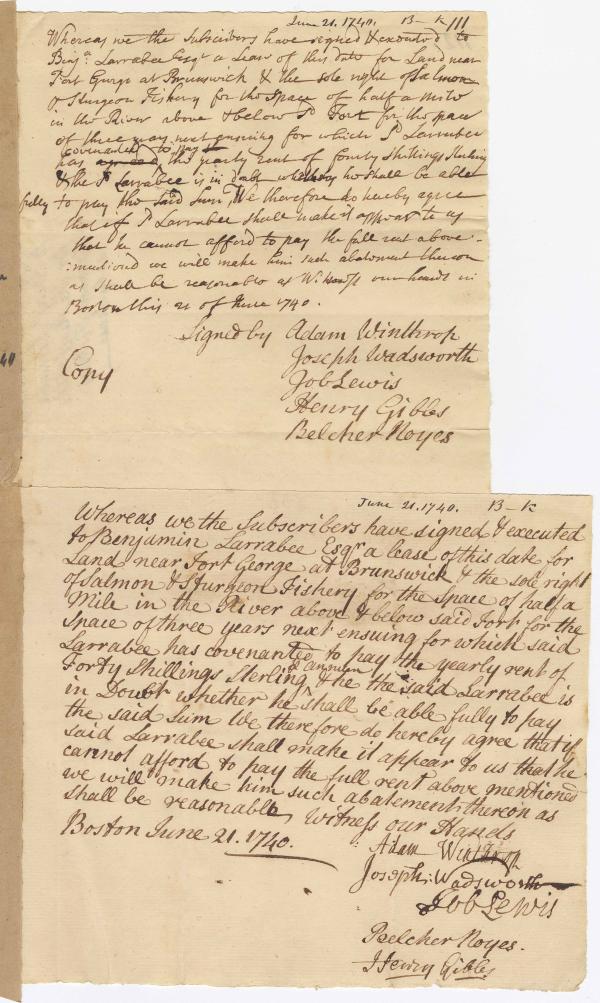 June 21. 1740. B-K 111
Whereas we the Subscribers have signed & executed to
Benja. Larrabee Esqr a Lease of this date for Land near
Fort George at Brunswick & the sole right of Salmon
& Sturgeon Fishery for the Space of half a mile
in the River above & below sd Fort for the space
of three years next ensuing for which sd Larrabee
covenanted to pay
has agreed the yearly rent of fourty Shillings Sterling
& the sd Larrabee is in doubt whether he shall be able
fully to pay the said Sum, We therefore do hereby agree
that if sd Larrabee shall make it appear to us
that he cannot afford to pay the full rent above-
:mentioned we will make him such abatement thereon
as shall be reasonable as Witness our hands in
Boston this 21 of June 1740.
Signed by Adam Winthrop
Joseph Wadsworth
Copy
Job Lewis
Henry Gibbs
Belcher Noyes
40
June 21. 1740. B-K
Whereas we the Subscribers have signed & executed
to Benjamin Larrabee Esqr a lease of this date for
Land near Fort George at Brunswick & the sole right
of Salmon & Sturgeon Fishery for the Space of half a
Mile in the River above & below said Fort for the
Space of three years next ensuing for which said
Larrabee has covenanted to pay the yearly rent of
Forty Shillings Sterling annum & he the said Larrabee is
in Doubt whether he shall be able fully to pay
the said Sum We therefore do hereby agree that if
said Larrabee shall make it appear to us that he
cannot afford to pay the full rent above mentioned
we will make him such abatement thereon as
shall be reasonable Witness our Hands
Boston June 21. 1740.
Adam Winthrop
Joseph: Wadsworth
Job Lewis
Belcher Noyes.
Henry Gibbs